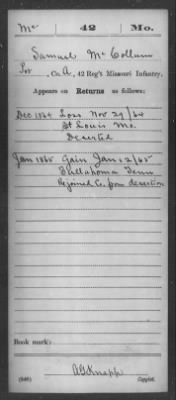 Mc 42 Mo.
Samuel McCollum
Pvt, Co. A, 42 Reg't Missouri Infantry.
Appears on Returns as follows:
Dec 1864 Loss Nov 29/64
St Louis Mo.
Deserted
Jan 1865 Gain Jan 12/65
Tullahoma Tenn
Rejoined Co. from desertion
Book mark:
(546) A G Knapp Copyist.